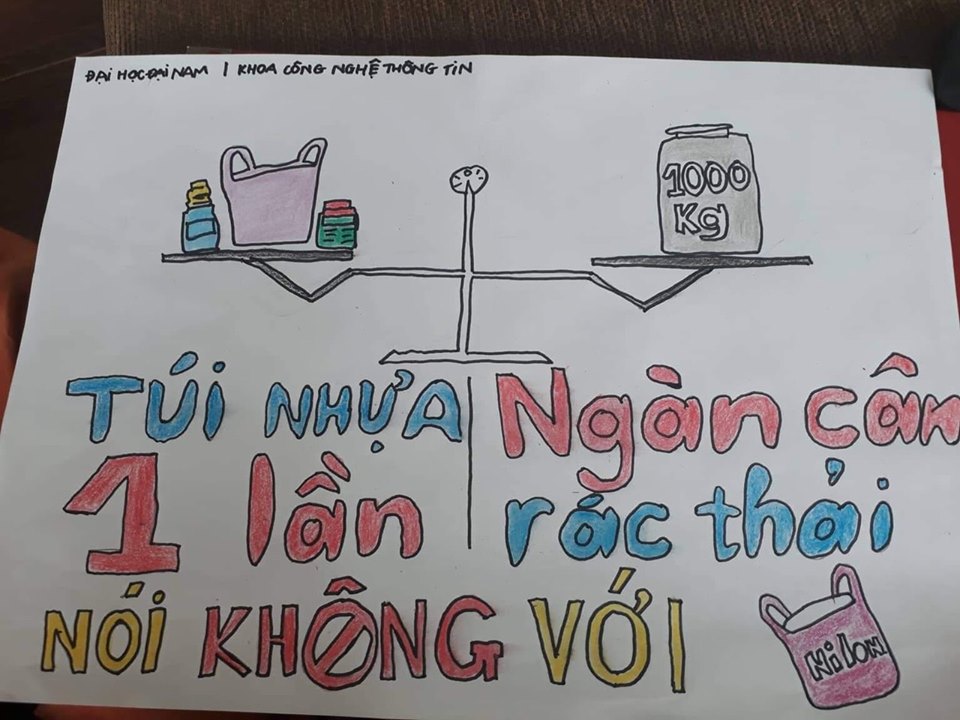 ĐẠI HỌC ĐẠI NAM | KHOA CÔNG NGHỆ THÔNG TIN
1000
Kg
TÚI NHỰA | Ngàn cân
1 lần | rác thải
NÓI KHÔNG VỚI
Nilon